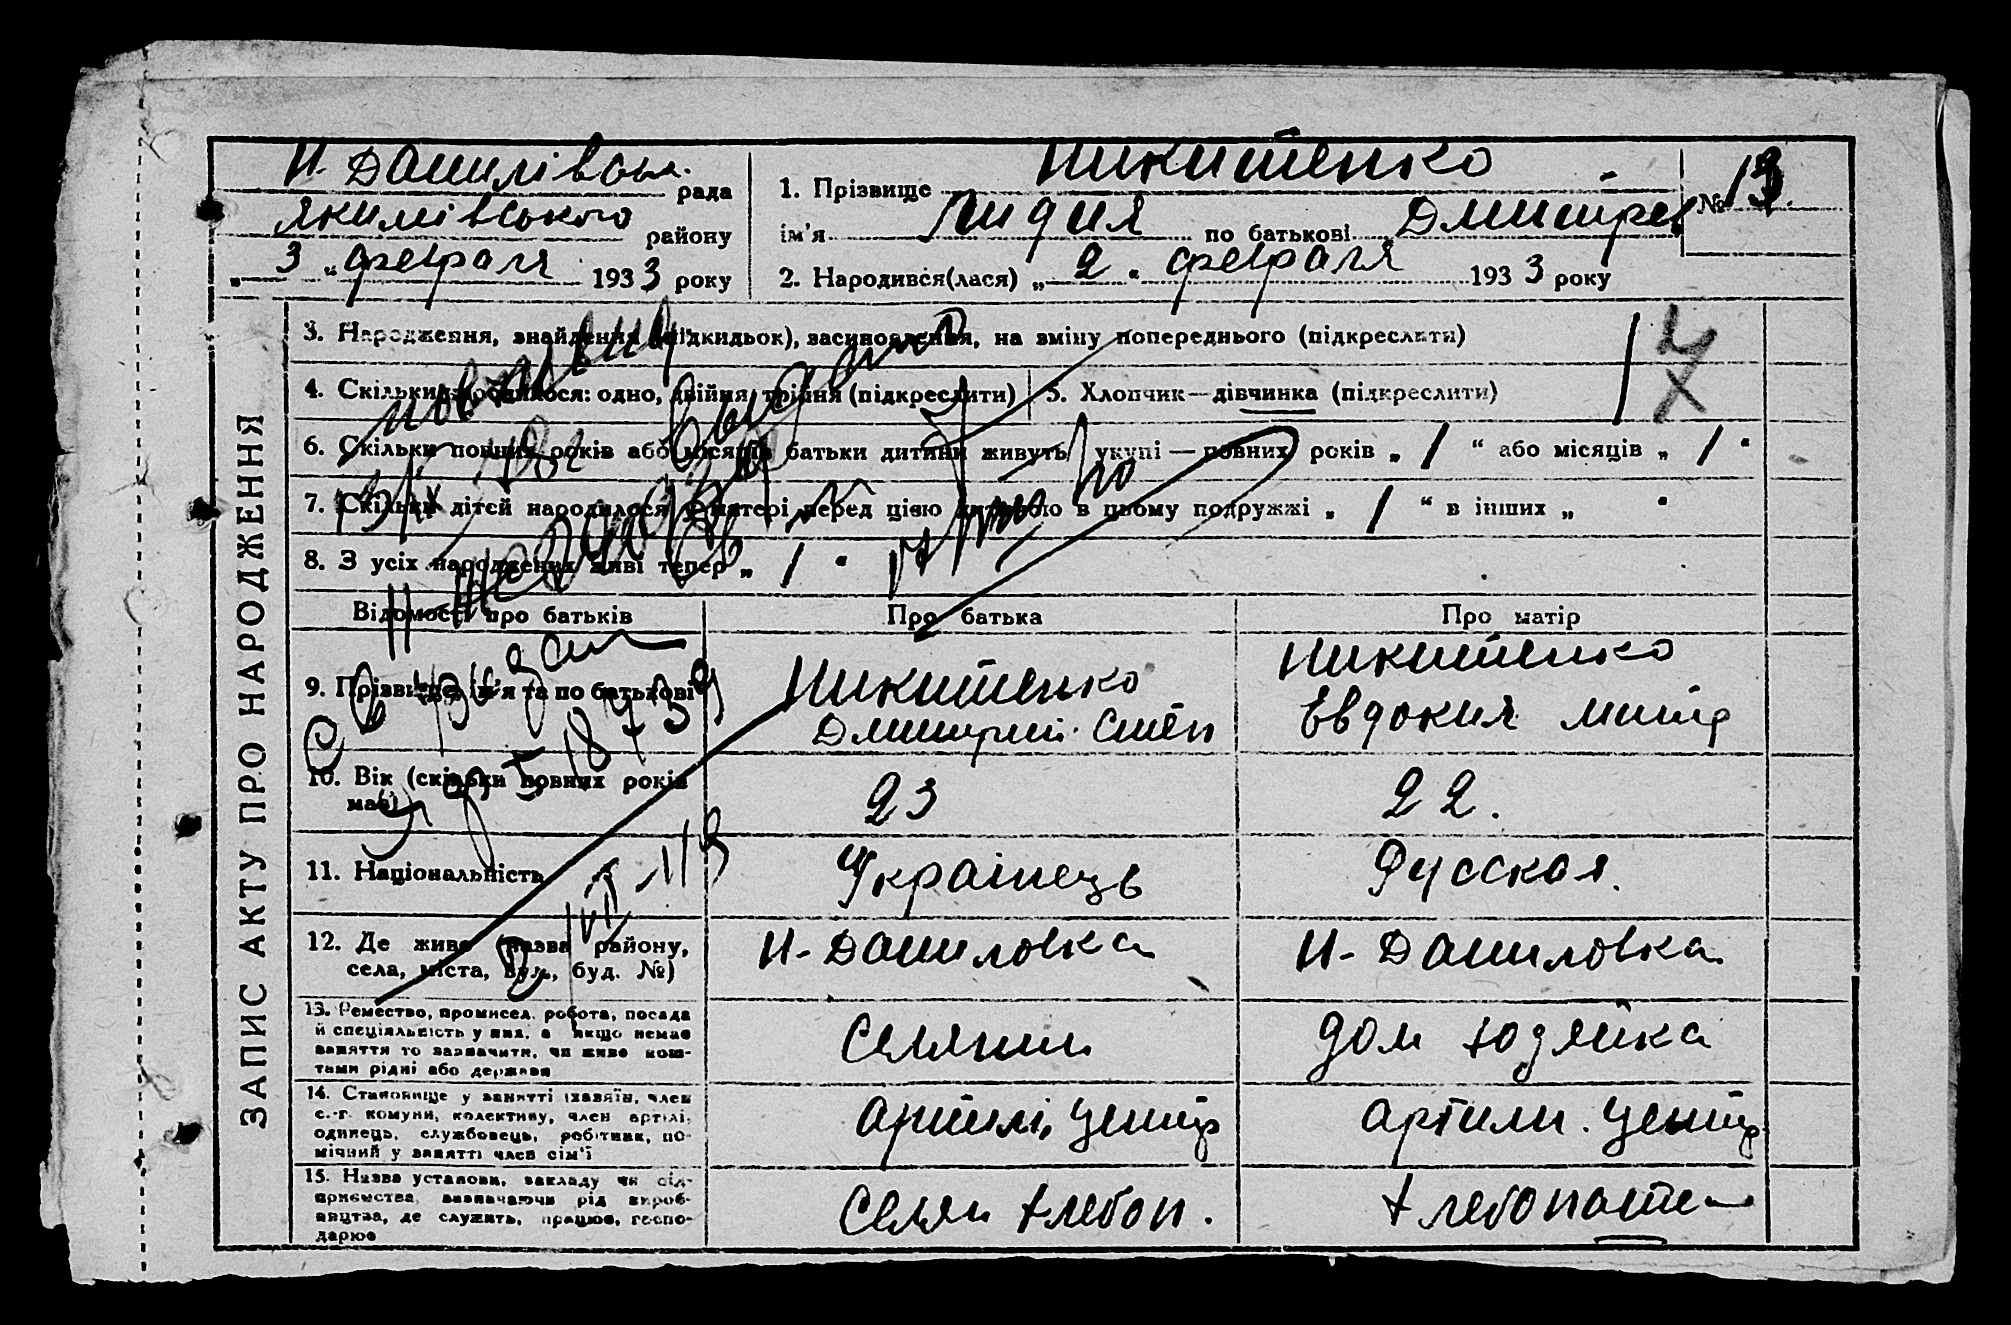 Н. Данилівськ. рада
Якимівського району
„ 3 “ февраля 1933 року
1. Прізвище Никитенко
ім'я Лидия по батькові Дмитрев
№ 13.
2. Народився(лася) „ 2 “ февраля 1933 року
ЗАПИС АКТУ ПРО НАРОДЖЕННЯ
3. Народження, знайдення (підкидьок), засиновлення, на зміну попереднього (підкреслити)
4. Скільки народилося: одно, двійня, трійня (підкреслити)
5. Хлопчик—дівчинка (підкреслити)
6. Скільки повних років або місяців батьки дитини живуть укупі — повних років „ / “ або місяців „ / “
7. Скільки дітей народилося у матері перед цією дитиною в цьому подружжі „ / “ в інших „ “
8. З усіх народжених живі тепер „ / “
Відомості про батьків
Про батька
Про матір
9. Прізвище, ім'я та по батькові
Никитенко
Дмитрий Степ
Никитенко
Евдокия Митр
10. Вік (скільки повних років має)
23
22.
11. Національність
Українець
Русская.
12. Де живе (назва району,
села, міста, вул., буд. №)
Н-Даниловка
Н-Даниловка
13. Ремество, промисел, робота, посада
й спеціяльність у них, а якщо немає
заняття то зазначити, чи живе кош-
тами рідні або держави
Селянин
дом хозяйка
14. Становище у занятті (хазяїн, член
с.-г. комуни, колективу, член артілі,
одинець, службовець, робітник, по-
мічний у занятті член сім'ї
артілі, центр
артили. центр
15. Назва установи, закладу чи під-
приємства, зазначаючи рід вироб-
ництва, де служить, працює, госпо-
дарює
Селян хлебоп.
хлебопаше
повторный
выдан
св выдан